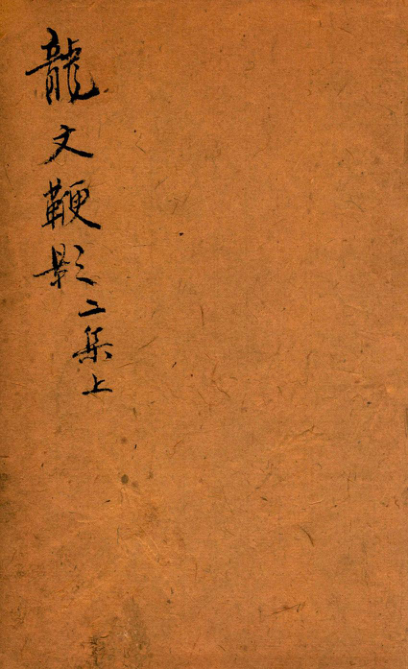 龍文鞭影二集上